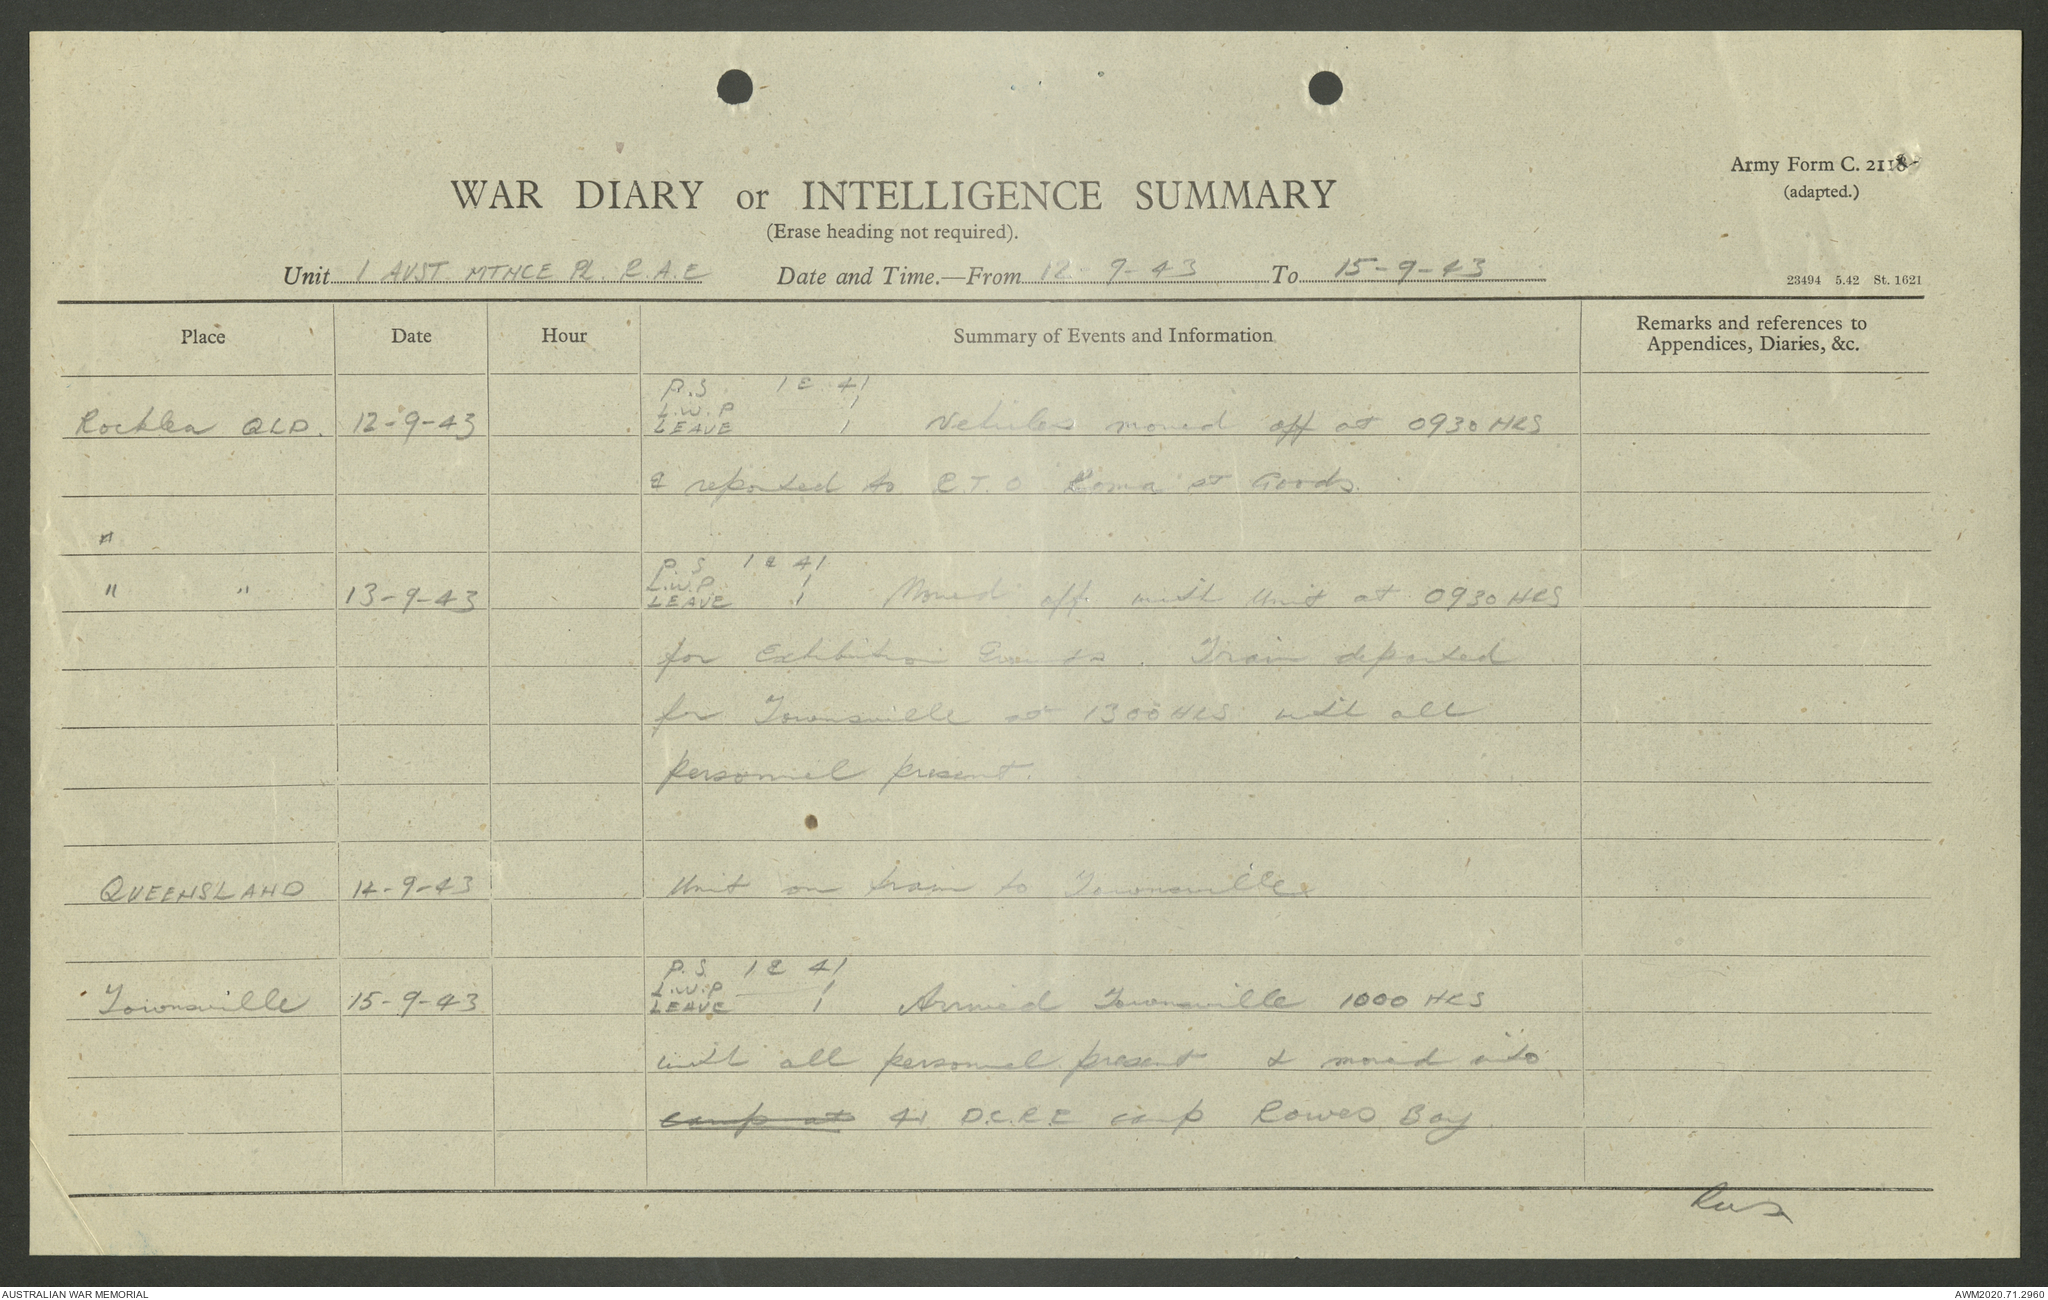 Army Form C. 2118
(adapted.)
WAR DIARY or INTELLIGENCE SUMMARY
(Erase heading not required).
Unit 1 AUST MTNCE PL. R.A.E Date and Time.—From 12-9-43 To 15-9-43
23494 5.42 St. 1621
Place Date Hour Summary of Events and Information Remarks and references to
Appendices, Diaries, &c.
P.S 1 & 41
L.W.P 1
Rocklea QLD. 12-9-43 LEAVE 1 Vehicles moved off at 0930 HRS
& reported to R.T.O Roma St Goods.
"
P.S 1 & 41
L.W.P. 1
" " 13-9-43 LEAVE 1 Moved off with Unit at 0930 HRS
for Exhibition Grounds. Train departed
for Townsville at 1300 HRS with all
personnel present.
QUEENSLAND 14-9-43 Unit on train to Townsville
P.S. 1 & 41
L.W.P 1
Townsville 15-9-43 LEAVE 1 Arrived Townsville 1000 HRS
with all personnel present & moved into
camp at 41 D.C.R.E camp Rowes Bay
AUSTRALIAN WAR MEMORIAL
AWM2020.71.2960